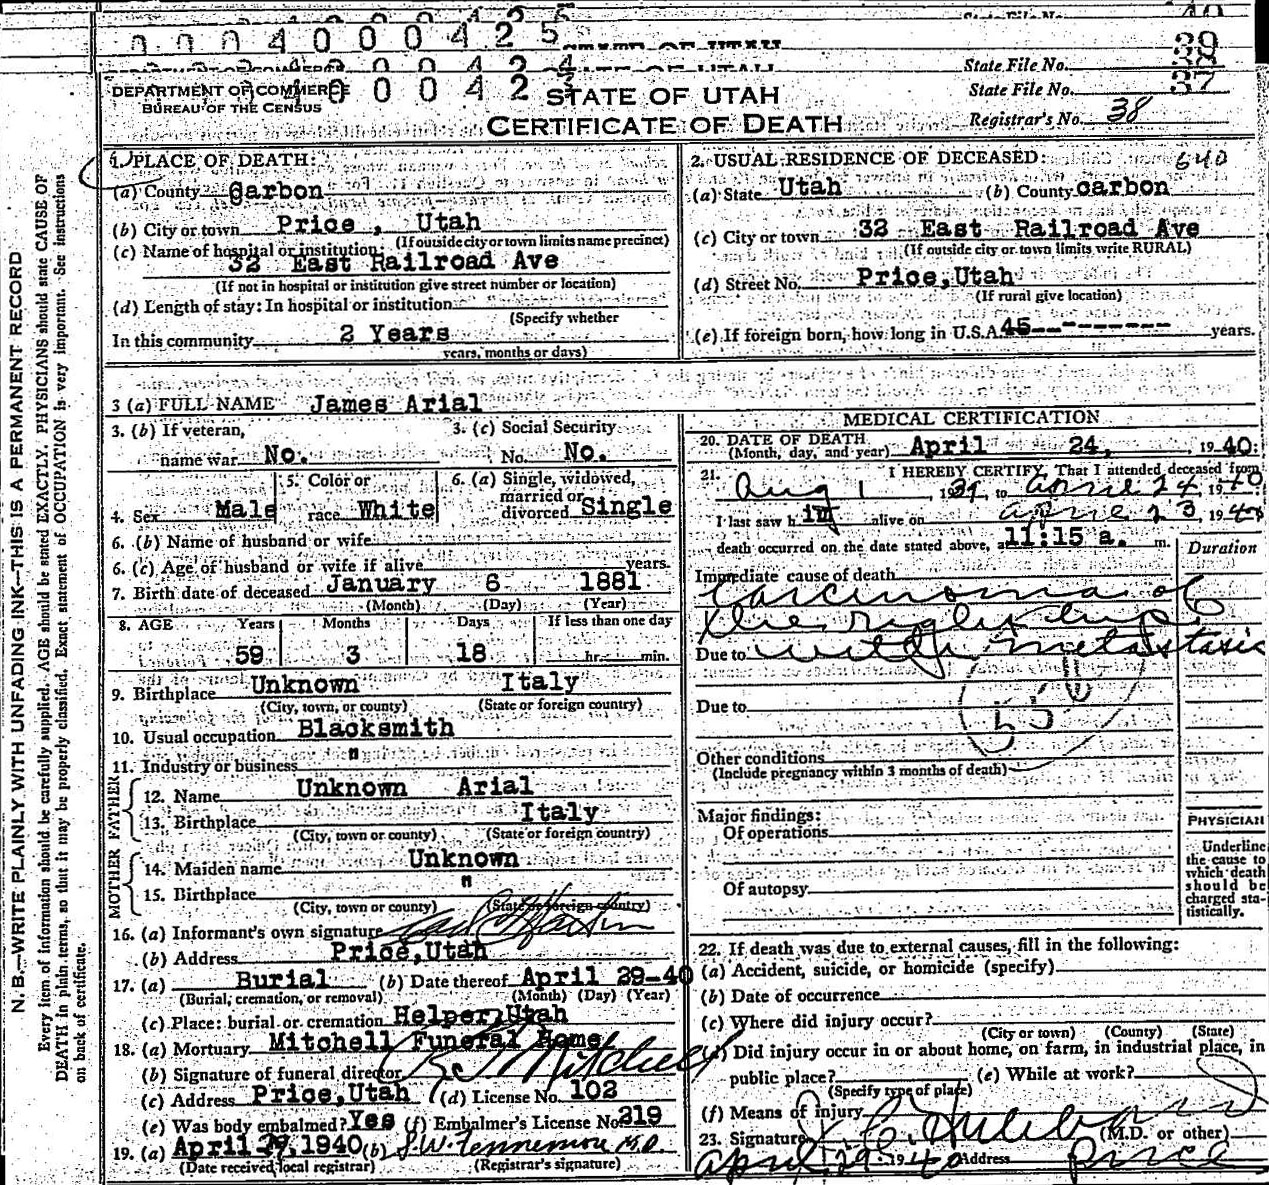 State File No. 40
0 0 0 4 0 0 0 4 2 5 STATE OF UTAH 39
0 0 4 2 4 STATE OF UTAH State File No. 38
DEPARTMENT OF COMMERCE
BUREAU OF THE CENSUS
4 0 0 0 4 2 3 STATE OF UTAH
State File No. 37
CERTIFICATE OF DEATH
Registrar's No. 38
N. B.—WRITE PLAINLY WITH UNFADING INK—THIS IS A PERMANENT RECORD
Every item of information should be carefully supplied. AGE should be stated EXACTLY. PHYSICIANS should state CAUSE OF
DEATH in plain terms, so that it may be properly classified. Exact statement of OCCUPATION is very important. See instructions
on back of certificate.
1. PLACE OF DEATH:
(a) County Carbon
(b) City or town Price , Utah
(If outside city or town limits name precinct)
(c) Name of hospital or institution:
32 East Railroad Ave
(If not in hospital or institution give street number or location)
(d) Length of stay: In hospital or institution
(Specify whether
In this community 2 Years
years, months or days)
2. USUAL RESIDENCE OF DECEASED: 640
(a) State Utah (b) County carbon
(c) City or town 32 East Railroad Ave
(If outside city or town limits write RURAL)
(d) Street No. Price, Utah
(If rural give location)
(e) If foreign born, how long in U.S.A. 45---------- years.
3 (a) FULL NAME James Arial
3. (b) If veteran,
name war No.
3. (c) Social Security
No. No.
4. Sex Male
5. Color or
race White
6. (a) Single, widowed,
married or
divorced Single
6. (b) Name of husband or wife
6. (c) Age of husband or wife if alive years.
7. Birth date of deceased January 6 1881
(Month) (Day) (Year)
8. AGE Years Months Days If less than one day
59 3 18 hr. min.
9. Birthplace Unknown Italy
(City, town, or county) (State or foreign country)
10. Usual occupation Blacksmith
11. Industry or business "
FATHER
12. Name Unknown Arial
13. Birthplace Italy
(City, town or county) (State or foreign country)
MOTHER
14. Maiden name Unknown
15. Birthplace "
(City, town or county) (State or foreign country)
16. (a) Informant's own signature
(b) Address Price, Utah
17. (a) Burial (b) Date thereof April 29-40
(Burial, cremation, or removal) (Month) (Day) (Year)
(c) Place: burial or cremation Helper, Utah
18. (a) Mortuary Mitchell Funeral Home
(b) Signature of funeral director Mitchell
(c) Address Price, Utah (d) License No. 102
(e) Was body embalmed? Yes (f) Embalmer's License No. 219
19. (a) April 29, 1940 (b) S.W. Fennemore M.D.
(Date received local registrar) (Registrar's signature)
MEDICAL CERTIFICATION
20. DATE OF DEATH
(Month, day, and year) April 24, , 1940:
21. I HEREBY CERTIFY, That I attended deceased from
Aug 1 , 1939, to April 24, 1940
I last saw h im alive on April 23, 1940
death occurred on the date stated above, at 11:15 a. m.
Duration
Immediate cause of death
Carcinoma of
the right lip
Due to with metastasis
Due to
Other conditions
(Include pregnancy within 3 months of death)
Major findings:
Of operations
Of autopsy
PHYSICIAN
Underline
the cause to
which death
should be
charged sta-
tistically.
22. If death was due to external causes, fill in the following:
(a) Accident, suicide, or homicide (specify)
(b) Date of occurrence
(c) Where did injury occur?
(City or town) (County) (State)
(d) Did injury occur in or about home, on farm, in industrial place, in
public place? (e) While at work?
(Specify type of place)
(f) Means of injury
23. Signature Hubbard (M.D. or other)
April 29 1940 Address Price